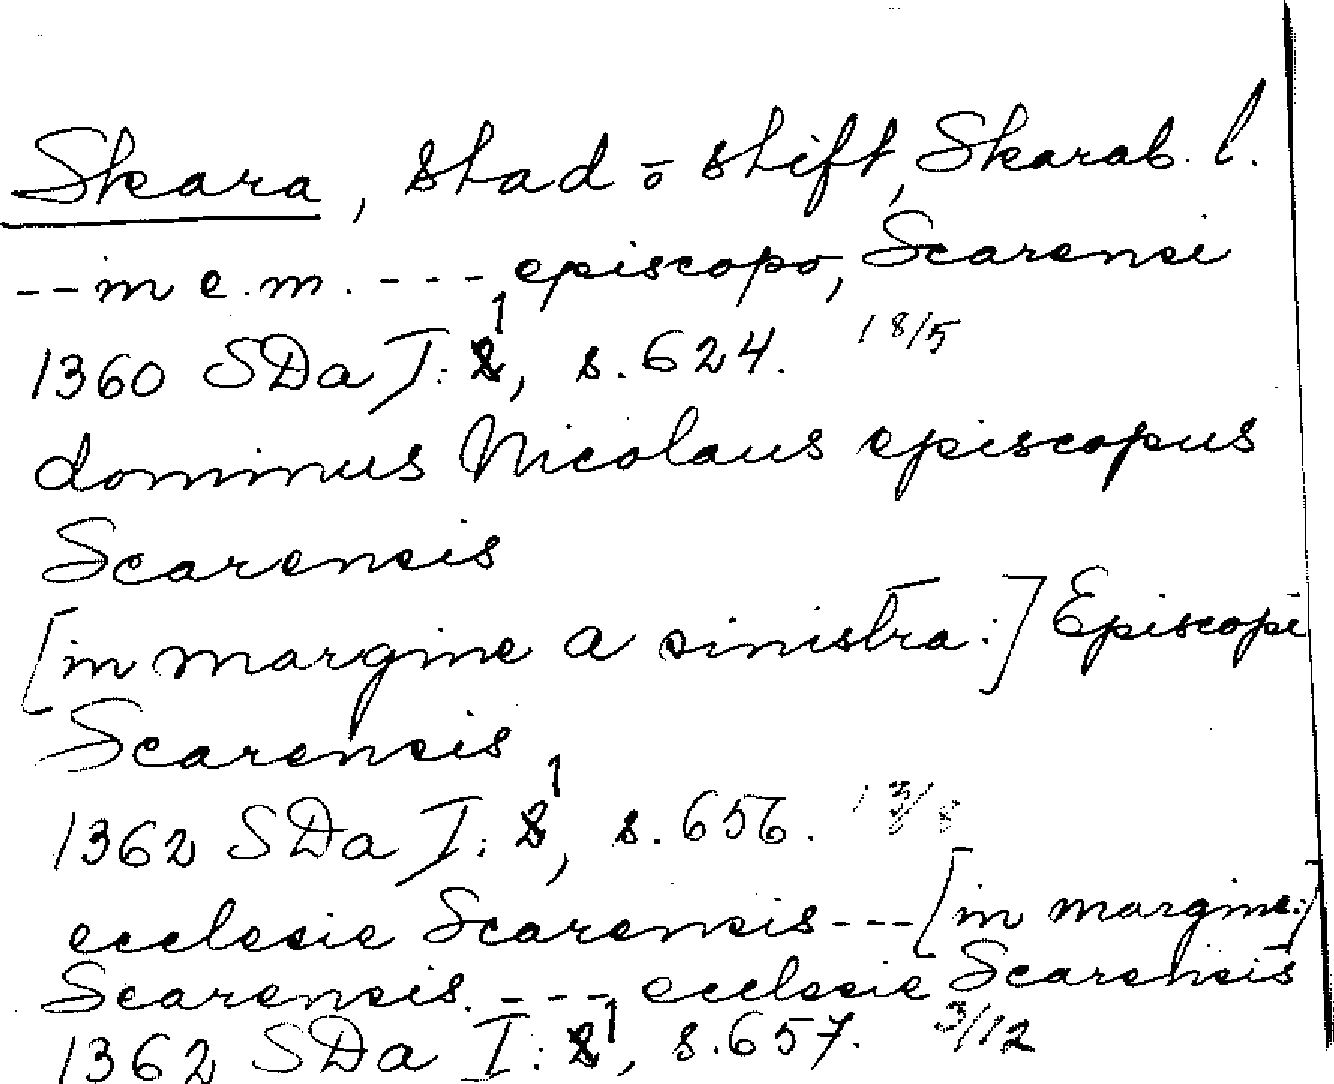 Skara, stad o stift, Skarab. l.
-- in e.m. --- episcopo, Scarensi
1360 SDa I:1, s.624. 18/5
dominus Nicolaus episcopus
Scarensis
[in margine a sinistra:] Episcopi
Scarensis
1362 SDa I:1, s.656. 13/8
ecclesie Scarensis --- [in margine:]
Scarensis. --- ecclesie Scarensis
1362 SDa I:1, s.657. 3/12